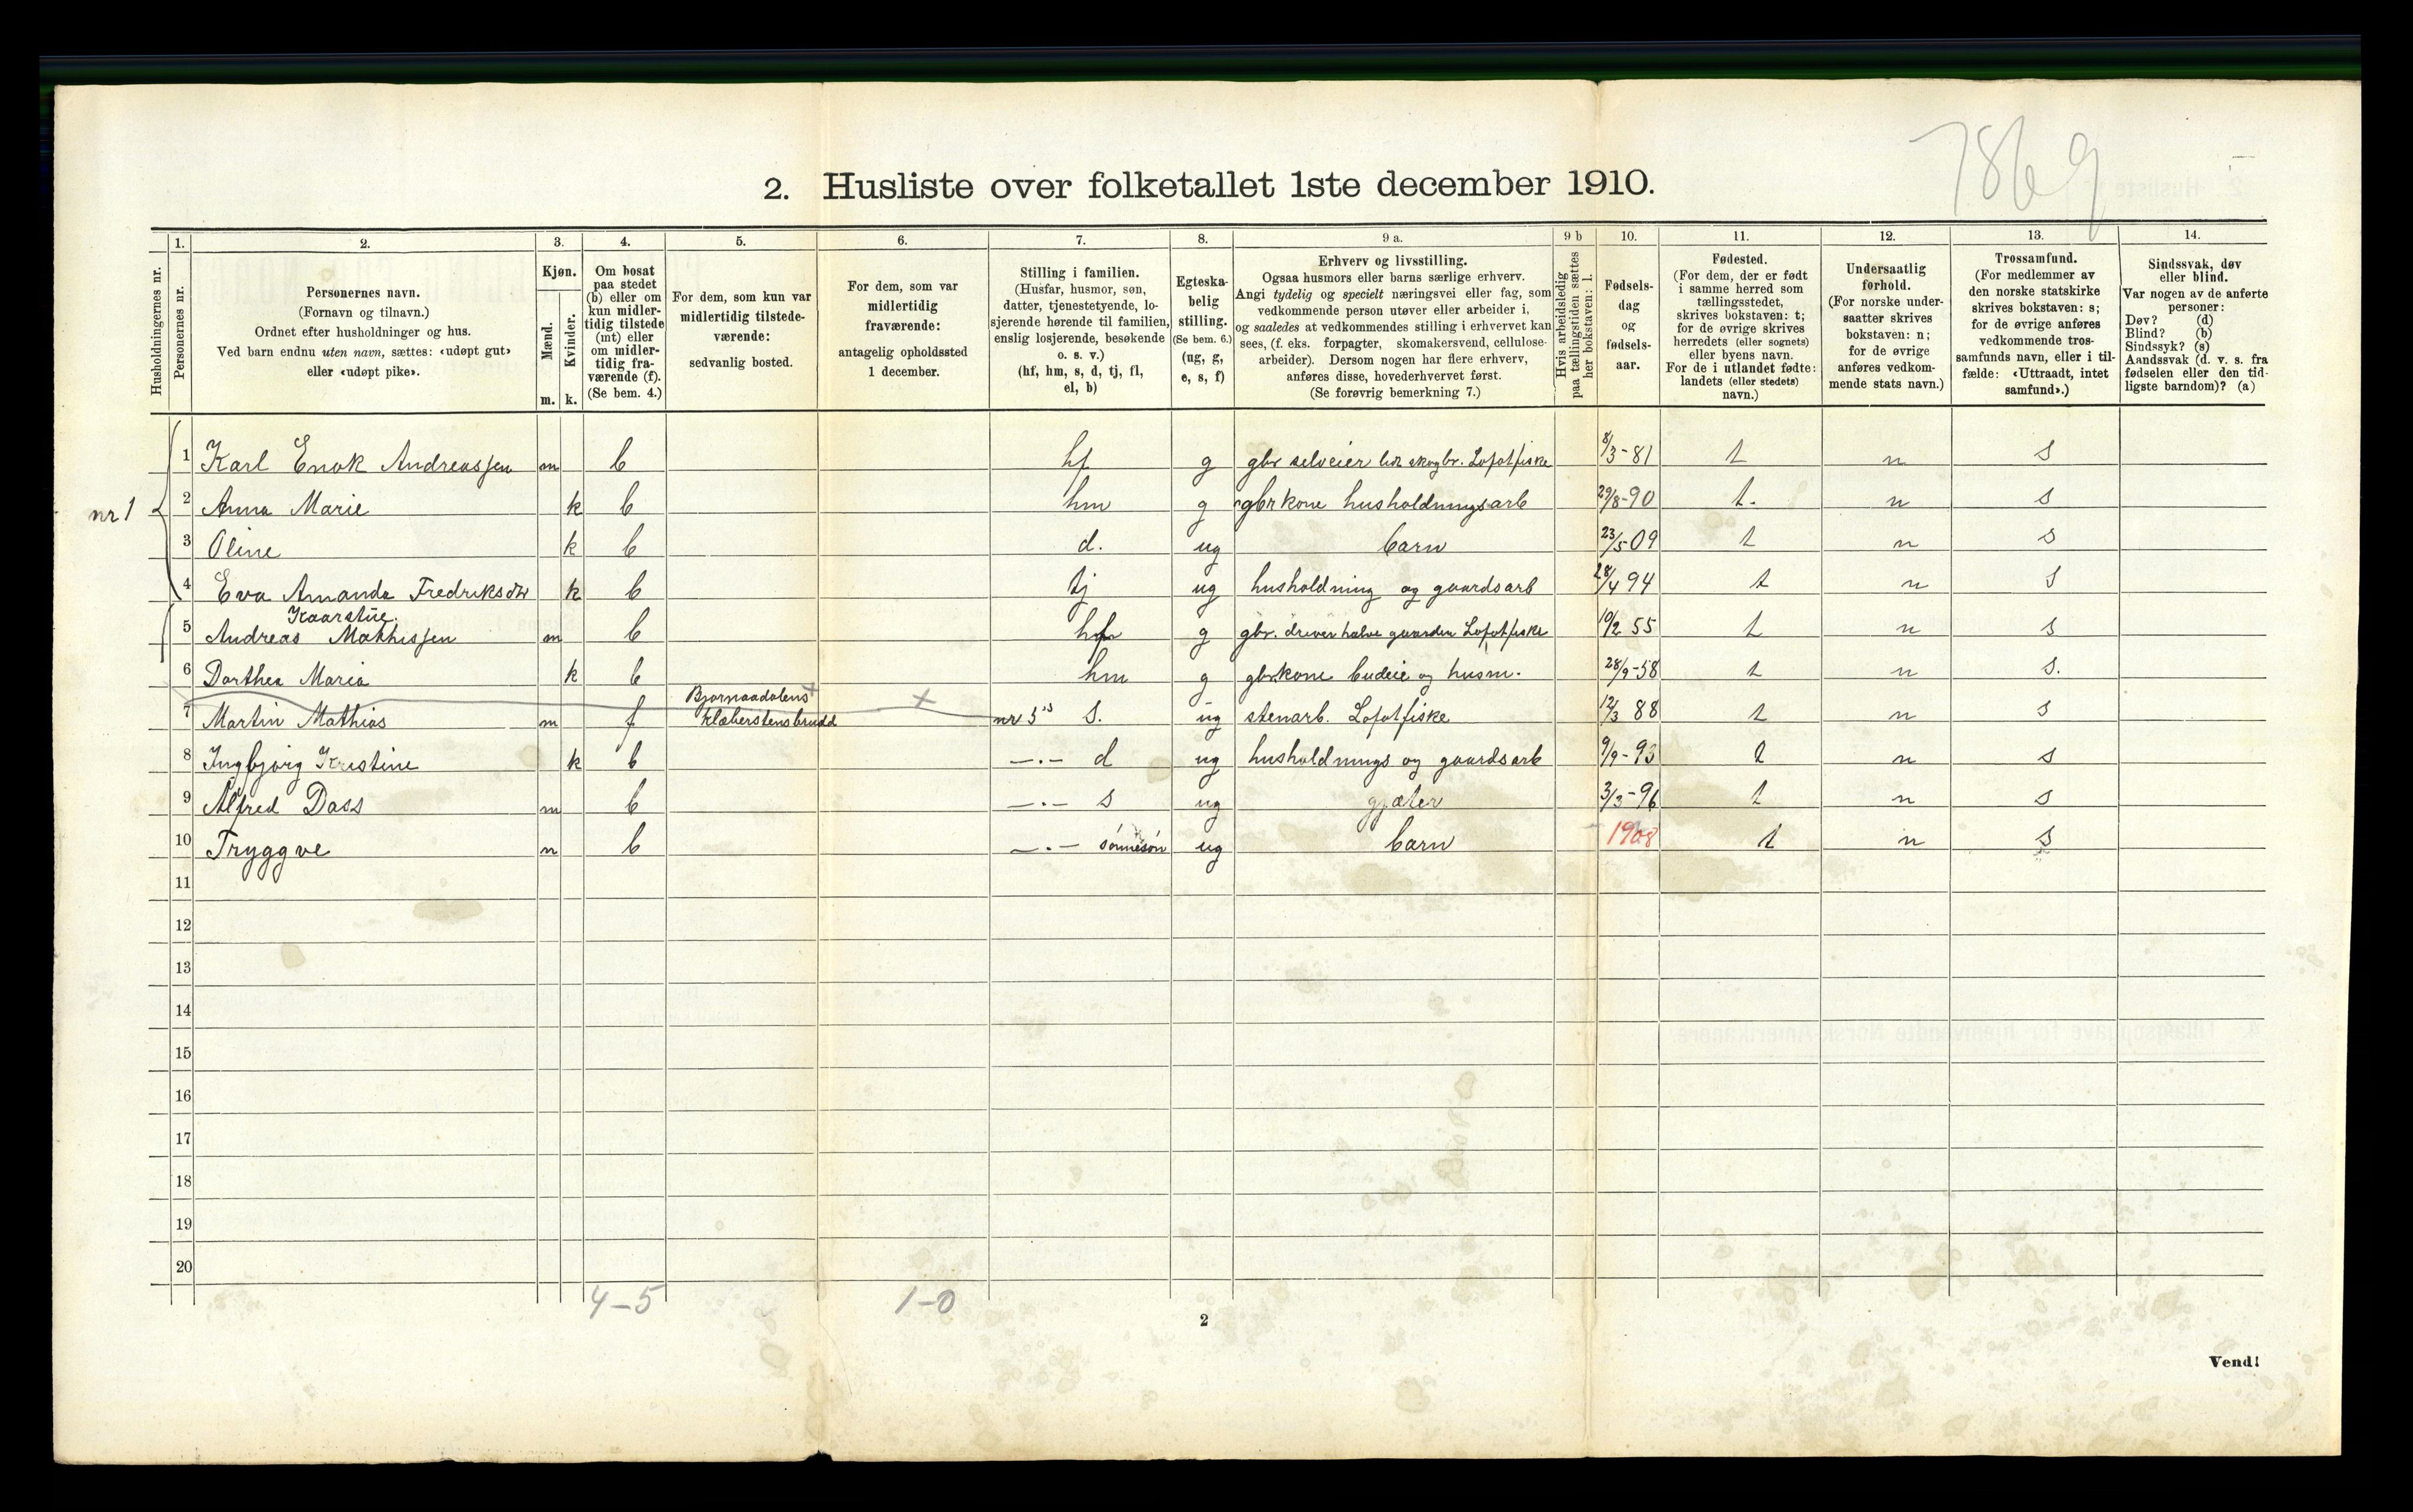 7869
2. Husliste over folketallet 1ste december 1910.
Husholdningernes nr.
1.
Personernes nr.
2.
Personernes navn.
(Fornavn og tilnavn.)
Ordnet efter husholdninger og hus.
Ved barn endnu uten navn, sættes: «udøpt gut»
eller «udøpt pike».
3.
Kjøn.
Mænd.
Kvinder.
m. k.
4.
Om bosat
paa stedet
(b) eller om
kun midler-
tidig tilstede
(mt) eller
om midler-
tidig fra-
værende (f).
(Se bem. 4.)
5.
For dem, som kun var
midlertidig tilstede-
værende:
sedvanlig bosted.
6.
For dem, som var
midlertidig
fraværende:
antagelig opholdssted
1 december.
7.
Stilling i familien.
(Husfar, husmor, søn,
datter, tjenestetyende, lo-
sjerende hørende til familien,
enslig losjerende, besøkende
o. s. v.)
(hf, hm, s, d, tj, fl,
el, b)
8.
Egteska-
belig
stilling.
(Se bem. 6.)
(ug, g,
e, s, f)
9 a.
Erhverv og livsstilling.
Ogsaa husmors eller barns særlige erhverv.
Angi tydelig og specielt næringsvei eller fag, som
vedkommende person utøver eller arbeider i,
og saaledes at vedkommendes stilling i erhvervet kan
sees, (f. eks. forpagter, skomakersvend, cellulose-
arbeider). Dersom nogen har flere erhverv,
anføres disse, hovederhvervet først.
(Se forøvrig bemerkning 7.)
9 b
Hvis arbeidsledig
paa tællingstiden sættes
her bokstaven: l.
10.
Fødsels-
dag
og
fødsels-
aar.
11.
Fødested.
(For dem, der er født
i samme herred som
tællingsstedet,
skrives bokstaven: t;
for de øvrige skrives
herredets (eller sognets)
eller byens navn.
For de i utlandet fødte:
landets (eller stedets)
navn.)
12.
Undersaatlig
forhold.
(For norske under-
saatter skrives
bokstaven: n;
for de øvrige
anføres vedkom-
mende stats navn.)
13.
Trossamfund.
(For medlemmer av
den norske statskirke
skrives bokstaven: s;
for de øvrige anføres
vedkommende tros-
samfunds navn, eller i til-
fælde: «Uttraadt, intet
samfund».)
14.
Sindssvak, døv
eller blind.
Var nogen av de anførte
personer:
Døv? (d)
Blind? (b)
Sindssyk? (s)
Aandssvak (d. v. s. fra
fødselen eller den tid-
ligste barndom)? (a)
nr 1
1 Karl Enok Andreassen m b hf g gbr selveier skogbr. Lofotfiske 8/3-81 t n s
2 Anna Marie k b hm g gbrkone husholdningsarb 29/8-90 t. n s
3 Oline k b d. ug barn 23/5 09 t n s
4 Eva Amanda Fredriksdtr k b tj ug husholdning og gaardsarb 28/4 94 t n s
Kaarstue.
5 Andreas Mathissen m b hf g gbr. driver halve gaarden Lofotfiske 10/2 55 t n s
6 Dorthea Maria k b hm g gbrkone budeie og husm. 28/9-58 t n s.
Bjørnaadalens x
7 Martin Mathias m f klæberstensbrudd x nr 5's s. ug stenarb. Lofotfiske 12/3 88 t n s
8 Ingbjørg Kristine k b —.— d ug husholdnings og gaardsarb 9/9-93 t n s
9 Alfred Dass m b —.— s ug gjæter 3/3-96 t n s
10 Tryggve m b —.— sønnesøn ug barn 1908 t n s
11
12
13
14
15
16
17
18
19
20
4-5 1-0
2
Vend!